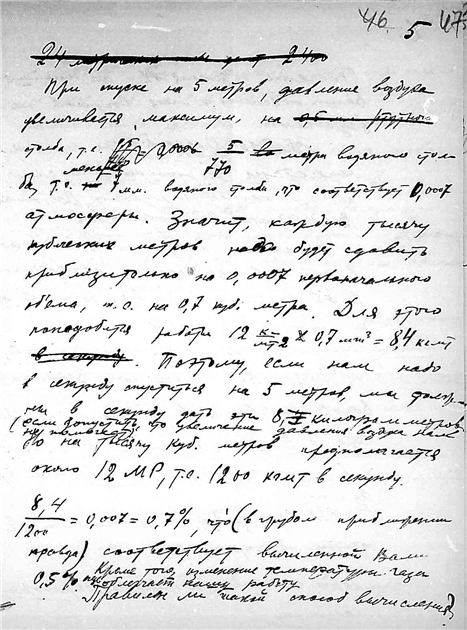 46. 5 47
24 метров 2400
При спуске на 5 метров, давление воздуха
увеличивается, максимум, на 0,5 м. ртутного
столба, т.е. 5/770 метра водяного стол-
ба, т.е. менее 7 мм. водяного столба, что соответствует 0,0007
атмосферы. Значит, каждую тысячу
кубических метров надо будет сдавить
приблизительно на 0,0007 первоначального
объема, т.е. на 0,7 куб. метра. Для этого
понадобится работа 12 × 0,7 мт³ = 8,4 кгмт
в секунду. Поэтому, если нам надо
в секунду опуститься на 5 метров, мы должны
в секунду дать эти 8,4 килограмметров
(если допустить, что увеличение давления воздуха нам
не помогает)
на тысячу куб. метров предполагается
около 12 МР, т.е. 1200 кгмт в секунду.
8,4/1200 = 0,007 = 0,7%, что (в грубом приближении
правда) соответствует вычисленной Вами
0,5%. Кроме того, изменение температуры газа
облегчает нашу работу.
Правилен ли такой способ вычисления?